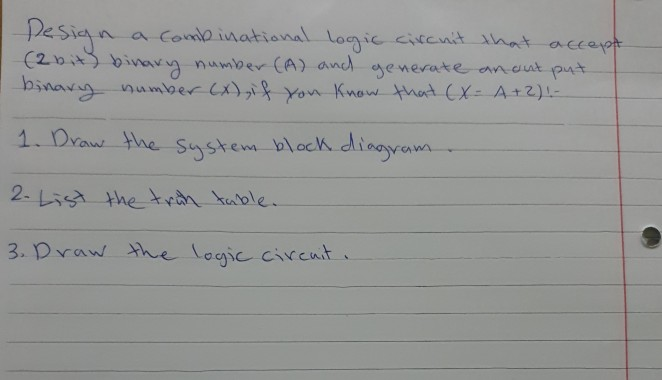 Design a combinational logic circuit that accept
(2bit) binary number (A) and generate an out put
binary number (X), if you Know that (X= A+2)!-
1. Draw the system block diagram.
2- List the truth table.
3. Draw the logic circuit.